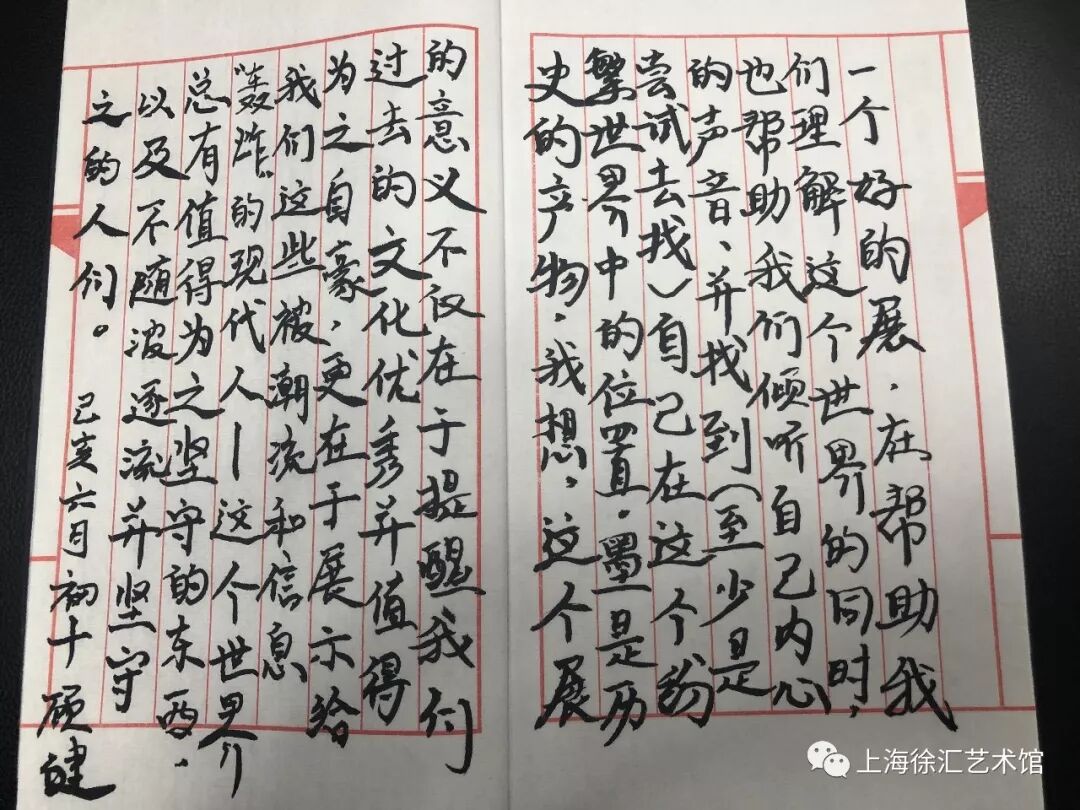 一个好的展，在帮助我
们理解这个世界的同时，
也帮助我们倾听自己内心
的声音、并找到（至少是
尝试去找）自己在这个纷
繁世界中的位置。墨是历
史的产物，我想，这个展
的意义不仅在于提醒我们
过去的文化优秀并值得
为之自豪，更在于展示给
我们这些被潮流和信息
轰炸的现代人—这个世界
总有值得为之坚守的东西，
以及不随波逐流并坚守
之的人们。
己亥六月初十 顾健
上海徐汇艺术馆